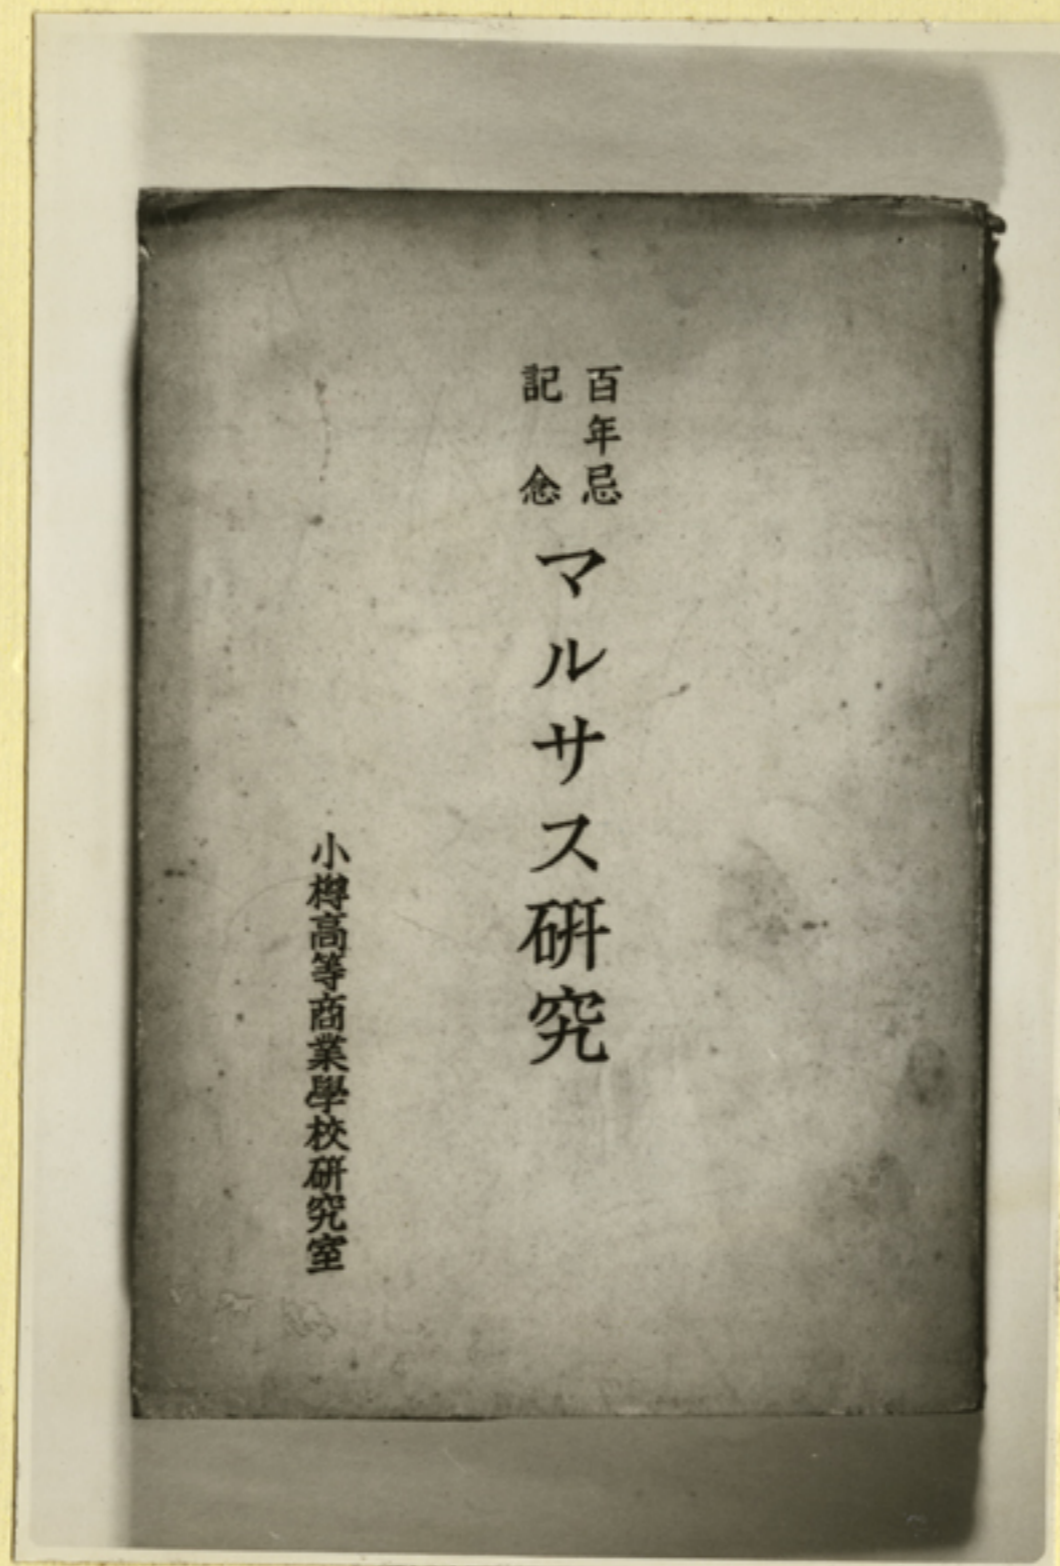 百年忌
記念
マルサス研究
小樽高等商業學校研究室